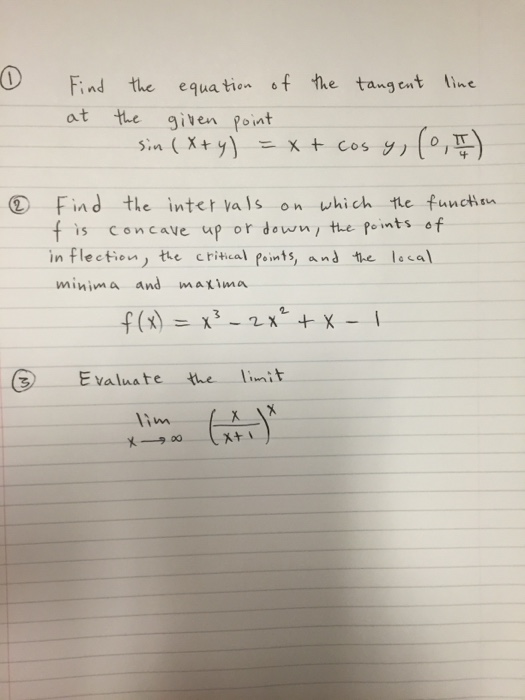 ① Find the equation of the tangent line
at the given point
sin (x+y) = x + cos y, (0, π/4)
② Find the intervals on which the function
f is concave up or down, the points of
inflection, the critical points, and the local
minima and maxima
f(x) = x³ - 2x² + x - 1
③ Evaluate the limit
lim x→∞ (x/x+1)^x